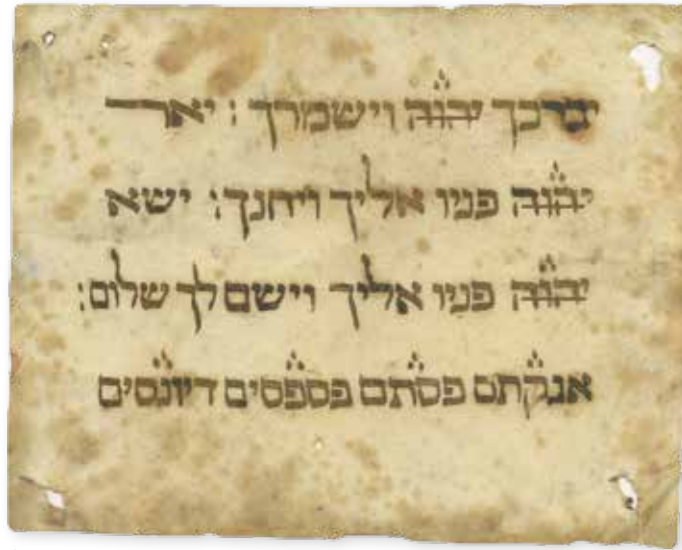 יברכך יהוה וישמרך : יאר
יהוה פניו אליך ויחנך : ישא
יהוה פניו אליך וישם לך שלום :
אנקתם פסתם פספסים דיונסים